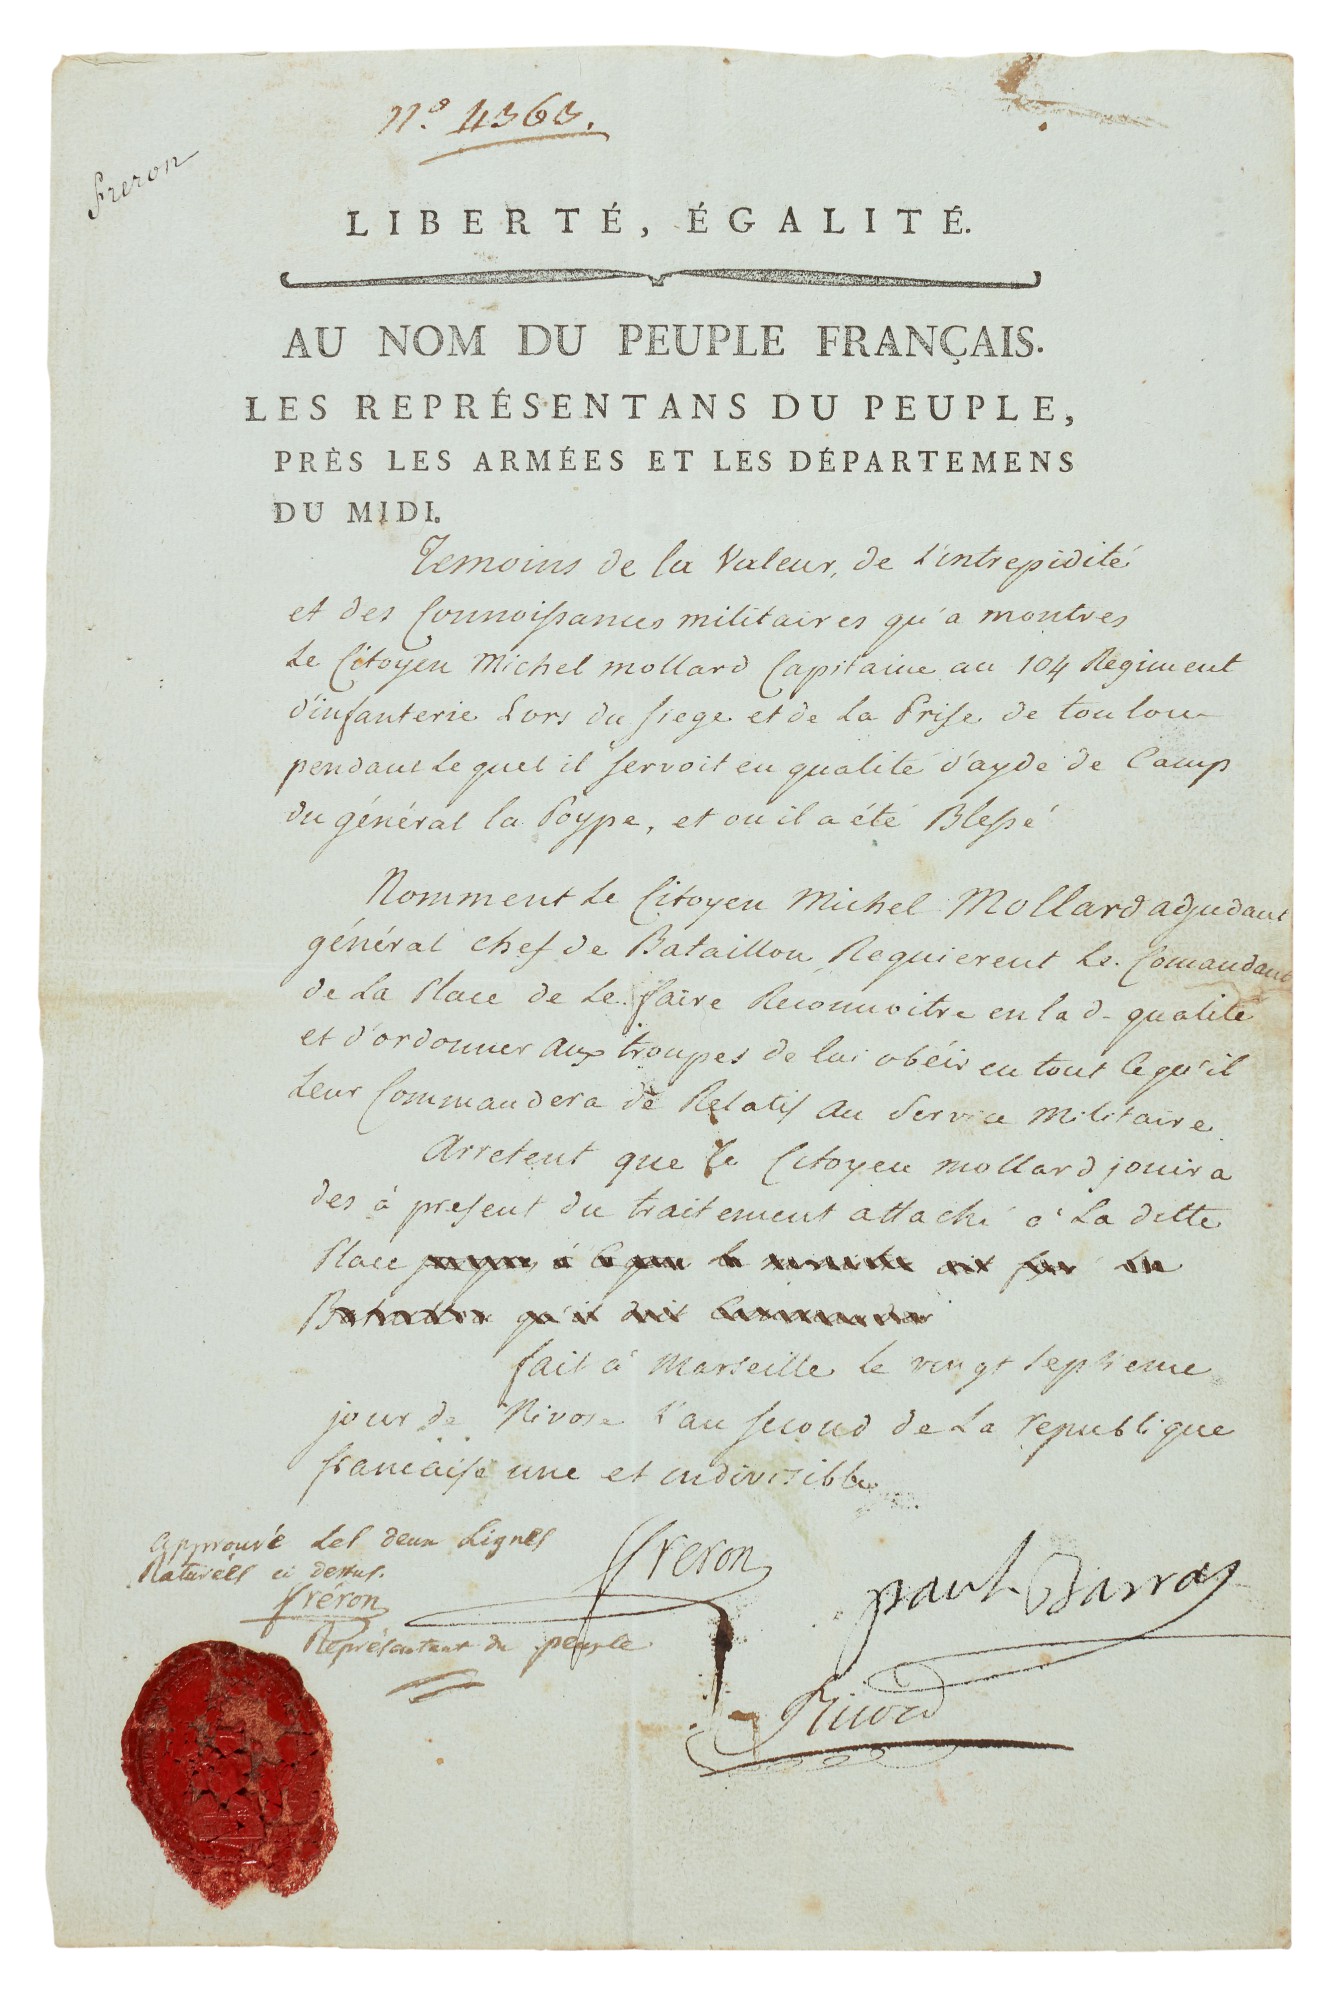 N.° 4363.
freron
LIBERTÉ, ÉGALITÉ.
AU NOM DU PEUPLE FRANÇAIS.
LES REPRÉSENTANS DU PEUPLE,
PRÈS LES ARMÉES ET LES DÉPARTEMENS
DU MIDI.
Temoins de la Valeur, de L'intrepidité
et des Connoissances militaires qu'a montres
Le Citoyen Michel Mollard Capitaine au 104 Regiment
d'infanterie Lors du siege et de La Prise de toulon
pendant Le quel il servoit en qualité d'ayde de Camp
du général la Poype, et ou il a été Blessé
Nomment Le Citoyen Michel Mollard adjudant
général chef de Bataillon, Requierent Le Comandant
de La Place de Le faire Reconnoitre en la d. qualité
et d'ordonner aux troupes de lui obéir en tout ce qu'il
Leur Commandera de Relatif au Service Militaire
Arretent que Le Citoyen Mollard jouira
des à present du traitement attaché à La ditte
Place
Bataillon qu'il doit Commander
fait à Marseille Le vingt septieme
jour de Nivose L'an second de La republique
francaise une et indivisible
approuvé Les deux Lignes
Raturées ci dessus.
fréron
Représentant du peuple
fréron
paul Barras
Ricord